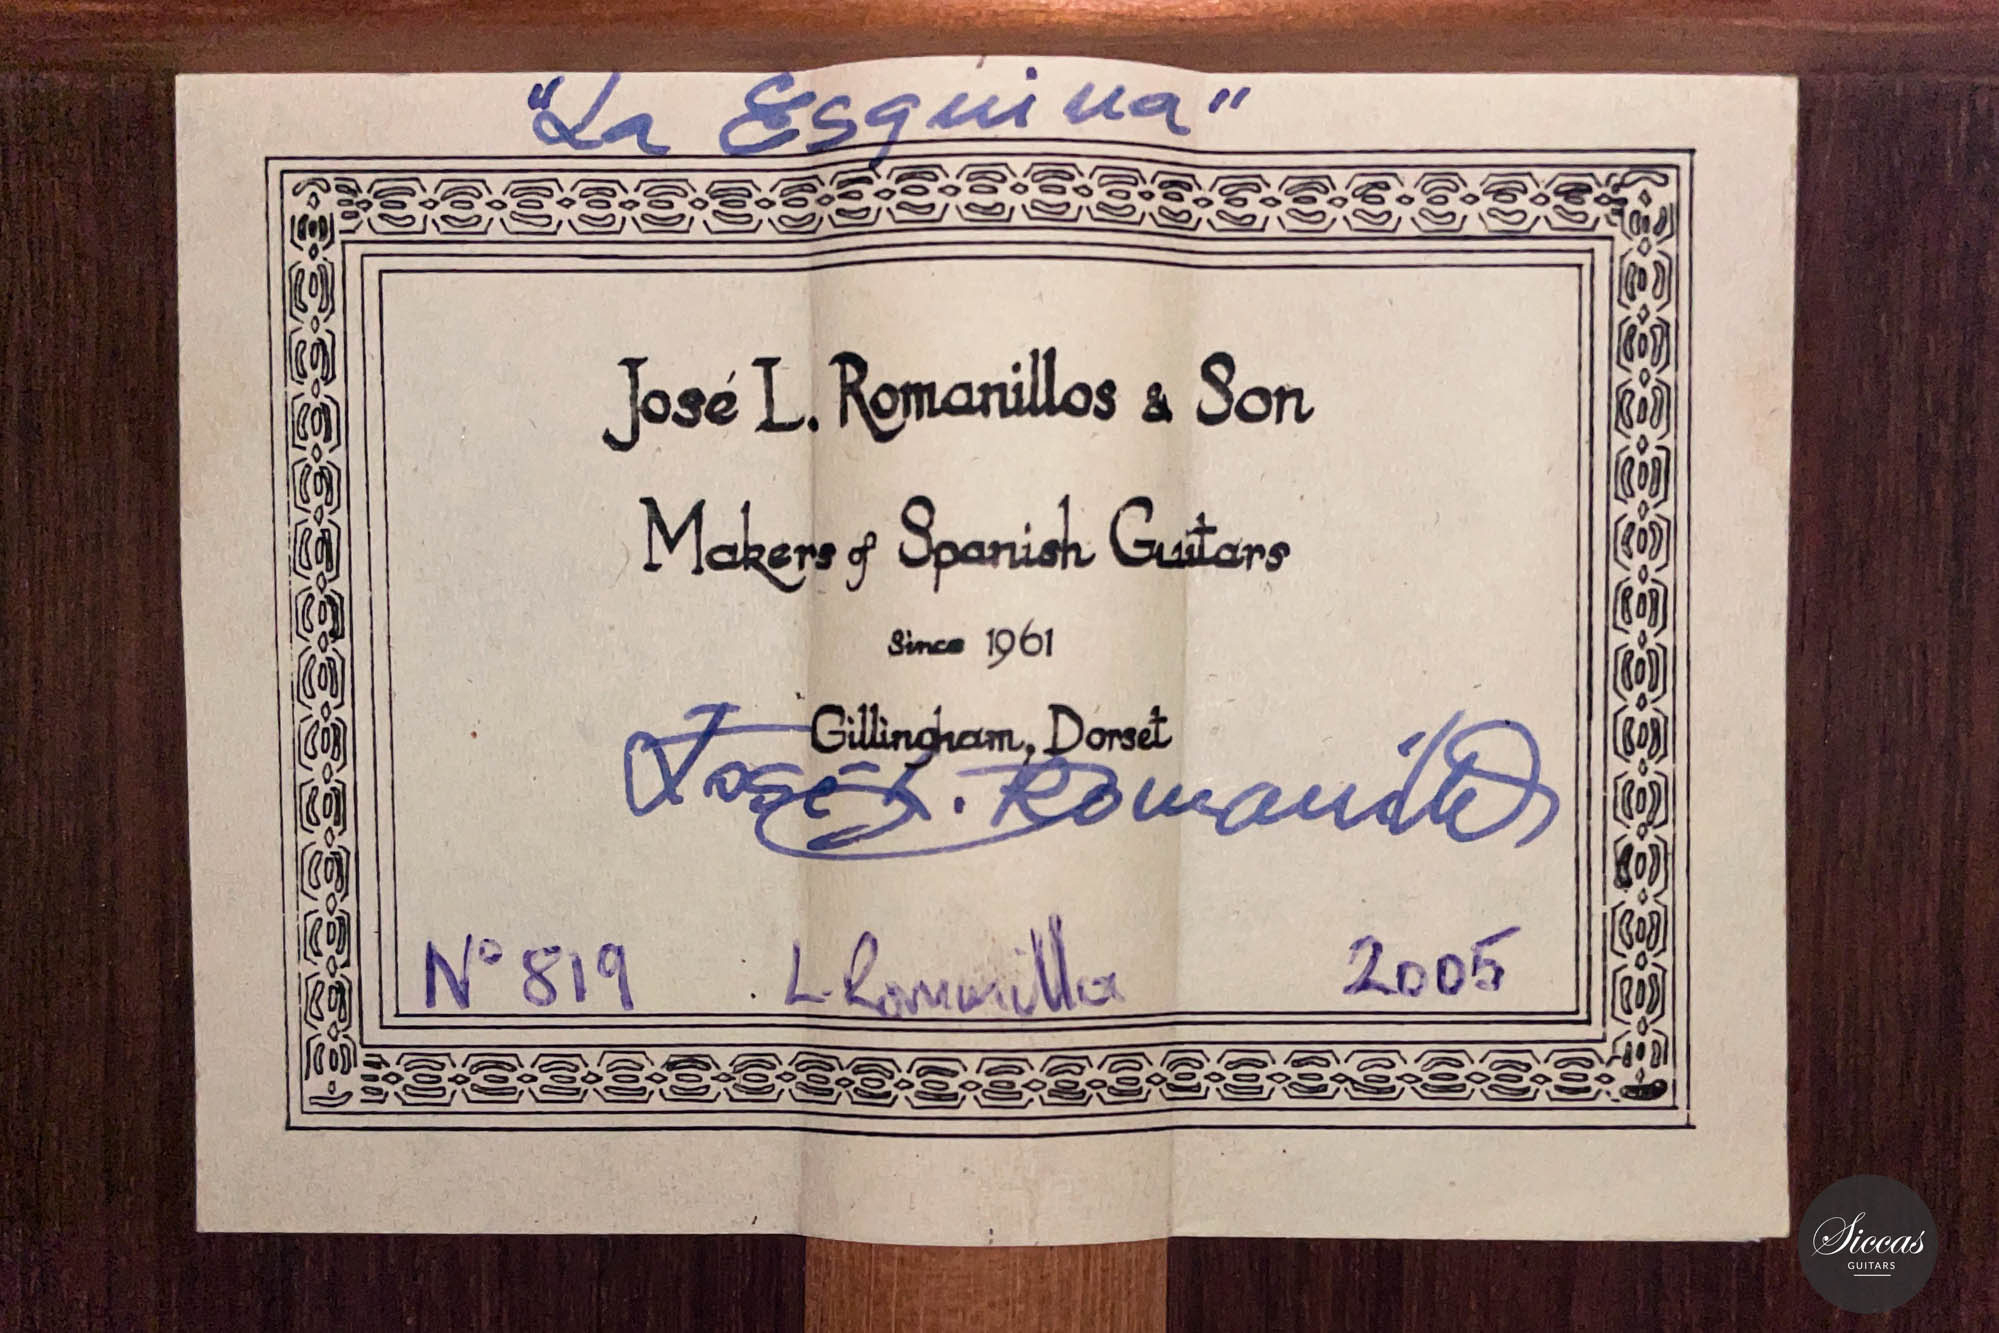 "La Esquina"
José L. Romanillos & Son
Makers of Spanish Guitars
Since 1961
Gillingham, Dorset
José L. Romanillos
Nº 819 L. Romanillos 2005
Siccas
GUITARS